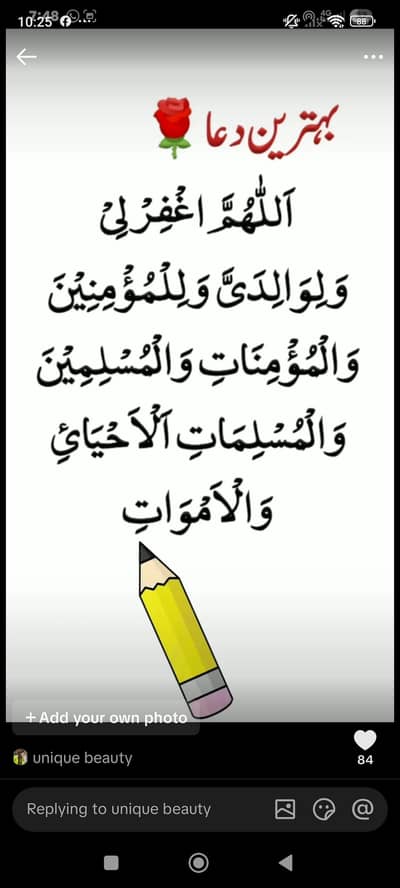 10:25
4G
88
بہترین دعا
اَللّٰهُمَّ اغْفِرْلِیْ
وَلِوَالِدَیَّ وَلِلْمُؤْمِنِیْنَ
وَالْمُؤْمِنَاتِ وَالْمُسْلِمِیْنَ
وَالْمُسْلِمَاتِ اَلْاَحْیَائِ
وَالْاَمْوَاتِ
+Add your own photo
unique beauty
84
Replying to unique beauty